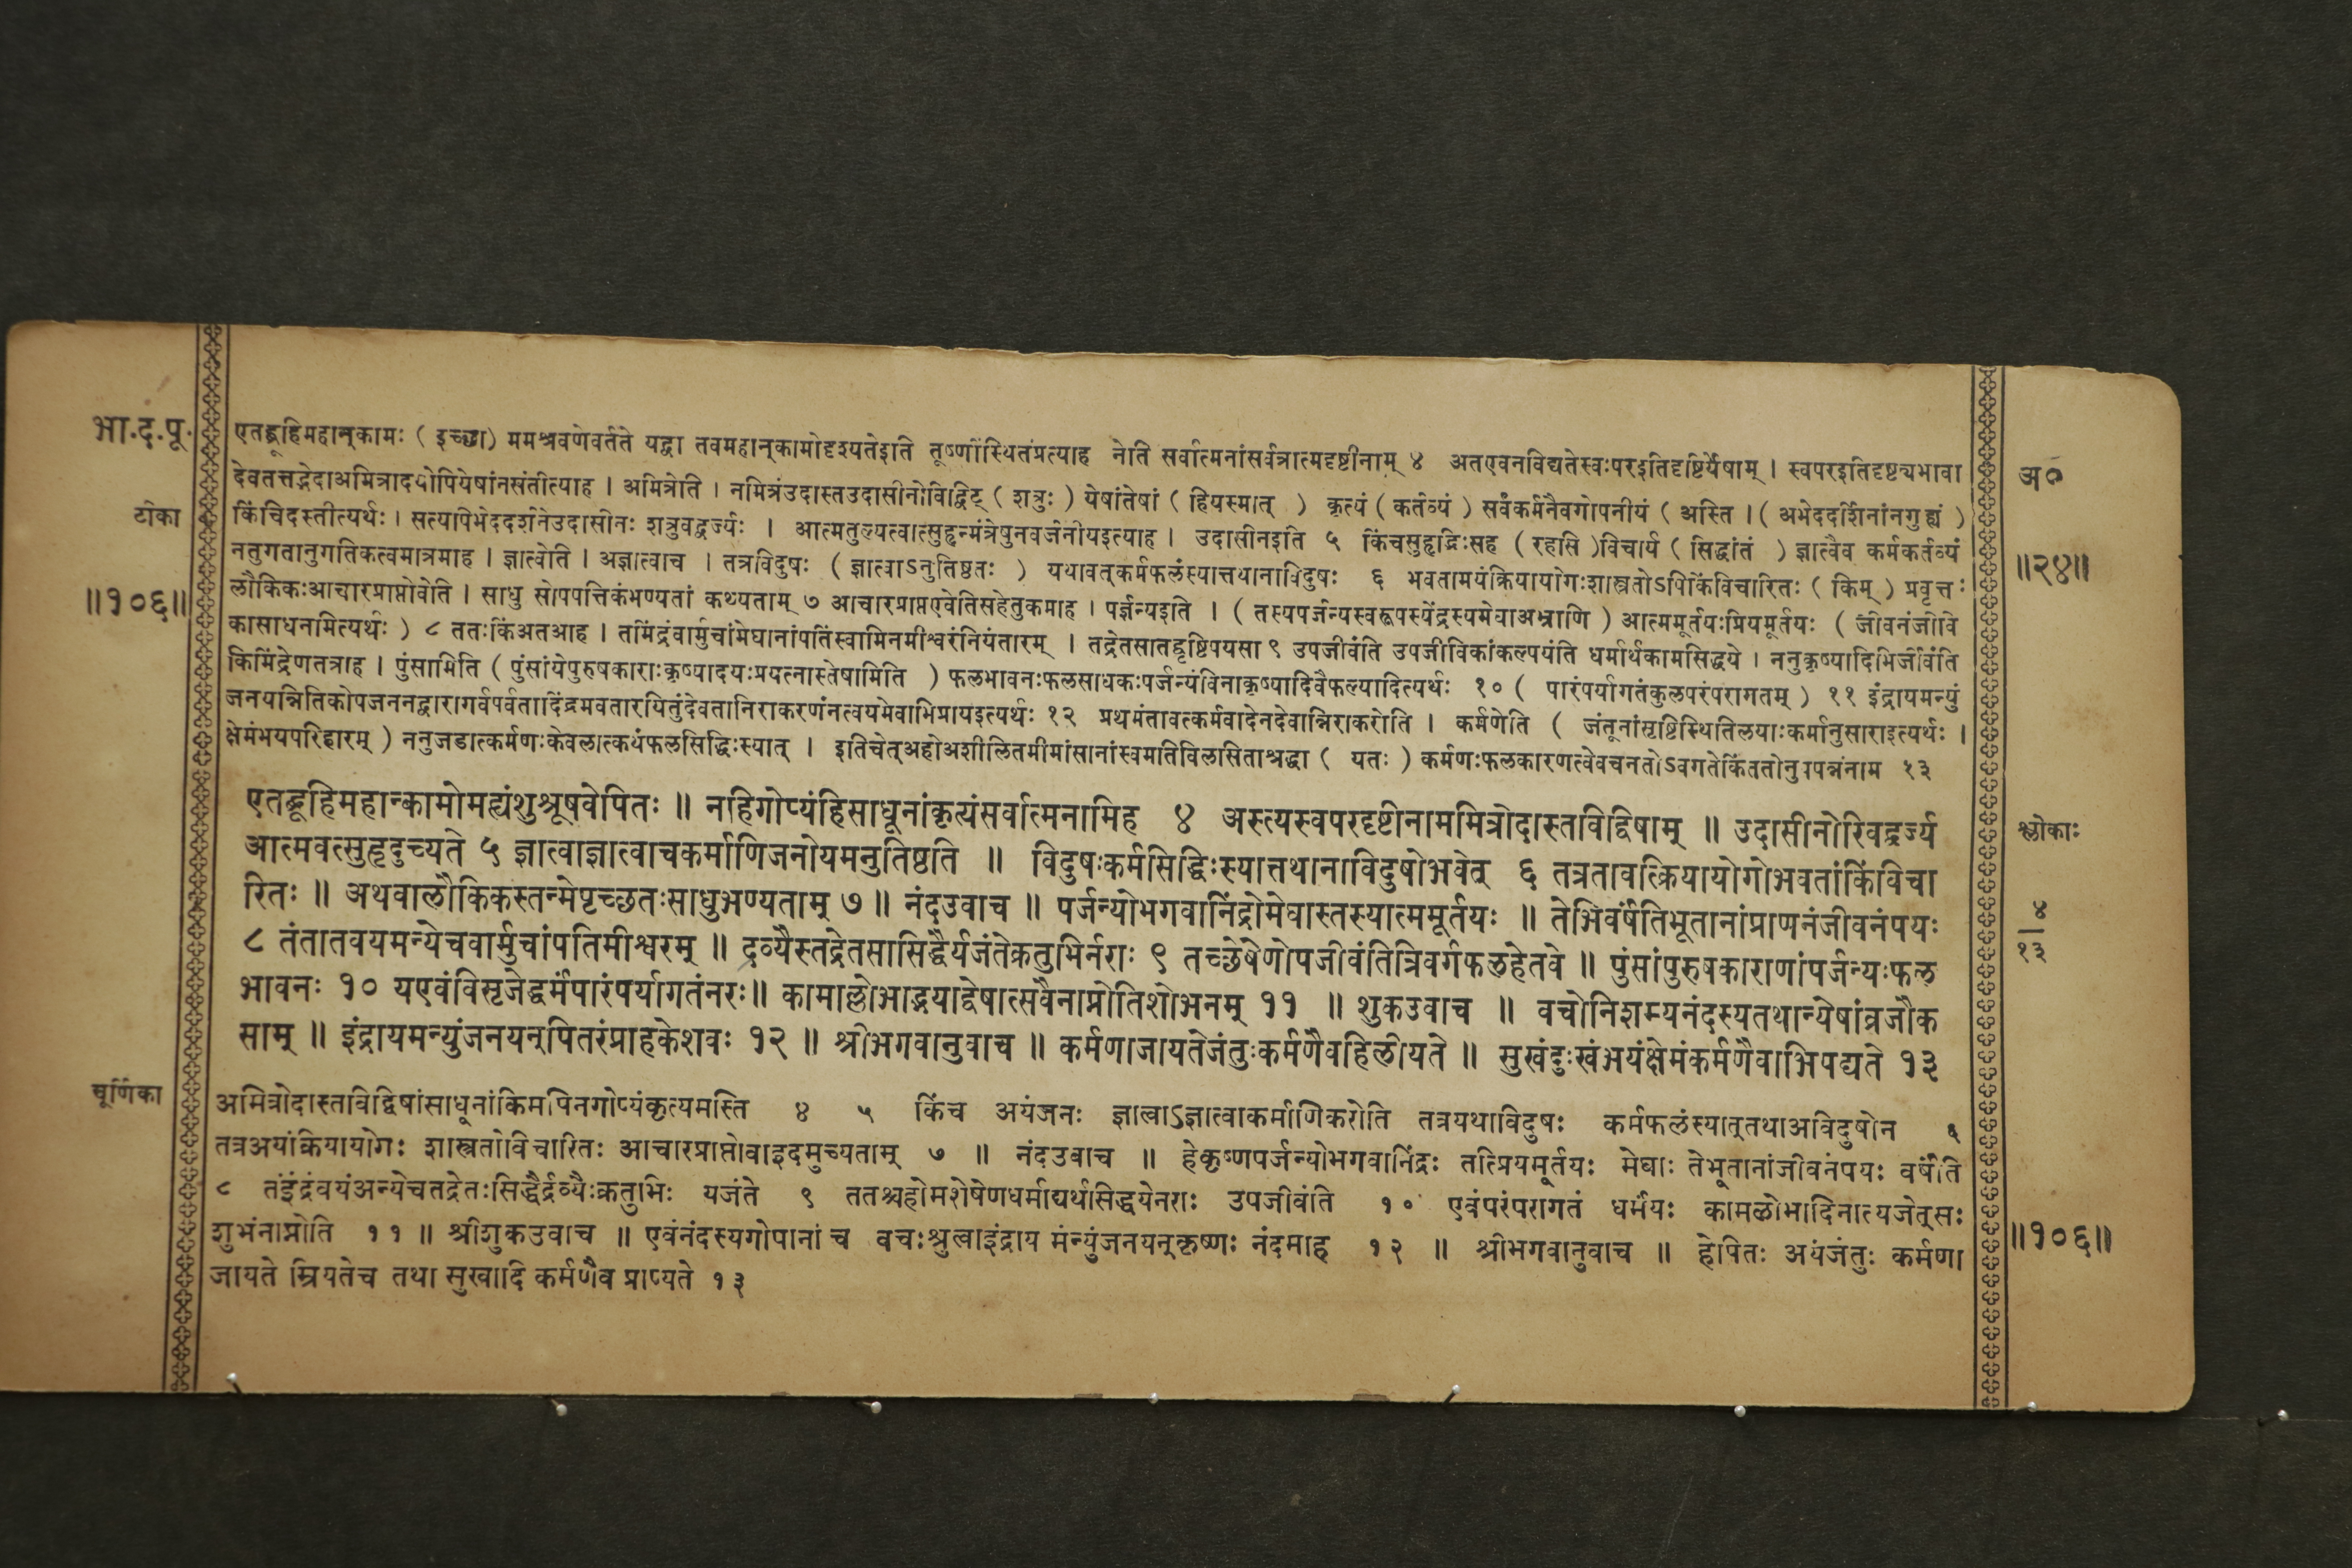 भा.द.पू.
टीका
॥१०६॥
एतद्ब्रूहिमहान्कामः ( इच्छा) ममश्रवणेवर्तते यद्वा तवमहान्कामोदृश्यतेइति तूष्णींस्थितंप्रत्याह नेति सर्वात्मनांसर्वत्रात्मदृष्टीनाम् ४ अतएवनविद्यतेस्वःपरइतिदृष्टिर्येषाम् । स्वपरइतिदृष्ट्यभावा
देवतत्तद्भेदाअमित्रादयोपियेषांनसंतीत्याह । अमित्रेति । नमित्रंउदास्तउदासीनोविद्विट् ( शत्रुः ) येषांतेषां ( हियस्मात् ) कृत्यं ( कर्तव्यं ) सर्वंकर्मनैवगोपनीयं ( अस्ति । ( अभेददर्शिनांनगुह्यं )
किंचिदस्तीत्यर्थः । सत्यपिभेददर्शनेउदासीनः शत्रुवद्वर्ज्यः । आत्मतुल्यत्वात्सुहृन्मंत्रेषुनवर्जनीयइत्याह । उदासीनइति ५ किंचसुहृद्भिःसह ( रहसि )विचार्य ( सिद्धांतं ) ज्ञात्वैव कर्मकर्तव्यं
नतुगतानुगतिकत्वमात्रमाह । ज्ञात्वेति । अज्ञात्वाच । तत्रविदुषः ( ज्ञात्वाऽनुतिष्ठतः ) यथावत्कर्मफलंस्यात्तथानाविदुषः ६ भवतामयंक्रियायोगःशास्त्रतोऽपिकिंविचारितः ( किम् ) प्रवृत्तः
लौकिकःआचारप्राप्तोवेति । साधु सोपपत्तिकंभण्यतां कथ्यताम् ७ आचारप्राप्तएवेतिसहेतुकमाह । पर्जन्यइति । ( तस्यपर्जन्यस्वरूपस्येंद्रस्यमेघाअभ्राणि ) आत्ममूर्तयःप्रियमूर्तयः ( जीवनंजीवि
कासाधनमित्यर्थः ) ८ ततःकिंअतआह । तमिंद्रंवार्मुचांमेघानांपतिंस्वामिनमीश्वरंनियंतारम् । तद्रेतसातद्वृष्टिपयसा ९ उपजीवंति उपजीविकांकल्पयंति धर्मार्थकामसिद्धये । ननुकृष्यादिभिर्जीवंति
किमिंद्रेणतत्राह । पुंसामिति ( पुंसांयेपुरुषकाराःकृष्यादयःप्रयत्नास्तेषामिति ) फलभावनःफलसाधकःपर्जन्यंविनाकृष्यादिवैफल्यादित्यर्थः १० ( पारंपर्यागतंकुलपरंपरागतम् ) ११ इंद्रायमन्युं
जनयन्नितिकोपजननद्वारागर्वपर्वतादिंद्रमवतारयितुंदेवतानिराकरणंनत्वयमेवाभिप्रायइत्यर्थः १२ प्रथमंतावत्कर्मवादेनदेवान्निराकरोति । कर्मणेति ( जंतूनांसृष्टिस्थितिलयाःकर्मानुसाराइत्यर्थः ।
क्षेमंभयपरिहारम् ) ननुजडात्कर्मणःकेवलात्कथंफलसिद्धिःस्यात् । इतिचेत्अहोअशीलितमीमांसानांस्वमतिविलसिताश्रद्धा ( यतः ) कर्मणःफलकारणत्वेवचनतोऽवगतेकिंततोनुपपन्नंनाम १३
एतद्ब्रूहिमहान्कामोमह्यंशुश्रूषवेपितः ॥ नहिगोप्यंहिसाधूनांकृत्यंसर्वात्मनामिह ४ अस्त्यस्वपरदृष्टीनाममित्रोदास्तविद्विषाम् ॥ उदासीनोरिवद्वर्ज्य
आत्मवत्सुहृदुच्यते ५ ज्ञात्वाज्ञात्वाचकर्माणिजनोयमनुतिष्ठति ॥ विदुषःकर्मसिद्धिःस्यात्तथानाविदुषोभवेत् ६ तत्रतावत्क्रियायोगोभवतांकिंविचा
रितः ॥ अथवालौकिकस्तन्मेपृच्छतःसाधुभण्यताम् ७ ॥ नंदउवाच ॥ पर्जन्योभगवानिंद्रोमेघास्तस्यात्ममूर्तयः ॥ तेभिवर्षंतिभूतानांप्राणनंजीवनंपयः
८ तंतातवयमन्येचवार्मुचांपतिमीश्वरम् ॥ द्रव्यैस्तद्रेतसासिद्धैर्यजंतेक्रतुभिर्नराः ९ तच्छेषेणोपजीवंतित्रिवर्गफलहेतवे ॥ पुंसांपुरुषकाराणांपर्जन्यःफल
भावनः १० यएवंविसृजेद्धर्मंपारंपर्यागतंनरः॥ कामाल्लोभाद्भयाद्द्वेषात्सवैनाप्नोतिशोभनम् ११ ॥ शुकउवाच ॥ वचोनिशम्यनंदस्यतथान्येषांव्रजौक
साम् ॥ इंद्रायमन्युंजनयन्पितरंप्राहकेशवः १२ ॥ श्रीभगवानुवाच ॥ कर्मणाजायतेजंतुःकर्मणैवहिलीयते ॥ सुखंदुःखंभयंक्षेमंकर्मणैवाभिपद्यते १३
चूर्णिका
अमित्रोदास्तविद्विषांसाधूनांकिमपिनगोप्यंकृत्यमस्ति ४ ५ किंच अयंजनः ज्ञात्वाऽज्ञात्वाकर्माणिकरोति तत्रयथाविदुषः कर्मफलंस्यात्तथाअविदुषोन ६
तत्रअयंक्रियायोगः शास्त्रतोविचारितः आचारप्राप्तोवाइदमुच्यताम् ७ ॥ नंदउवाच ॥ हेकृष्णपर्जन्योभगवानिंद्रः तत्प्रियमूर्तयः मेघाः तेभूतानांजीवनंपयः वर्षंति
८ तंइंद्रंवयंअन्येचतद्रेतःसिद्धैर्द्रव्यैःक्रतुभिः यजंते ९ ततश्चहोमशेषेणधर्माद्यर्थसिद्धयेनराः उपजीवंति १० एवंपरंपरागतं धर्मंयः कामलोभादिनात्यजेत्सः
शुभंनाप्नोति ११ ॥ श्रीशुकउवाच ॥ एवंनंदस्यगोपानां च वचःश्रुत्वाइंद्राय मंन्युंजनयन्कृष्णः नंदमाह १२ ॥ श्रीभगवानुवाच ॥ हेपितः अयंजंतुः कर्मणा
जायते म्रियतेच तथा सुखादि कर्मणैव प्राप्यते १३
अ०
॥२४॥
श्लोकाः
४
१३
॥१०६॥